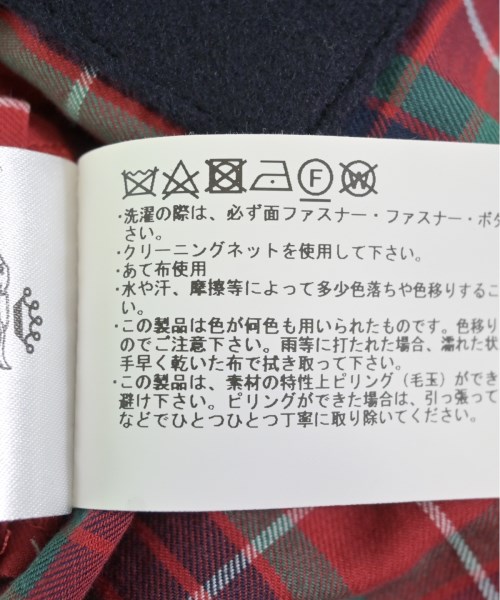 F W
・洗濯の際は、必ず面ファスナー・ファスナー・ボタ
さい。
・クリーニングネットを使用して下さい。
・あて布使用
・水や汗、摩擦等によって多少色落ちや色移りするこ
い。
・この製品は色が何色も用いられたものです。色移り
のでご注意下さい。雨等に打たれた場合、濡れた状
手早く乾いた布で拭き取って下さい。
・この製品は、素材の特性上ピリング（毛玉）ができ
避け下さい。ピリングができた場合は、引っ張って
などでひとつひとつ丁寧に取り除いてください。